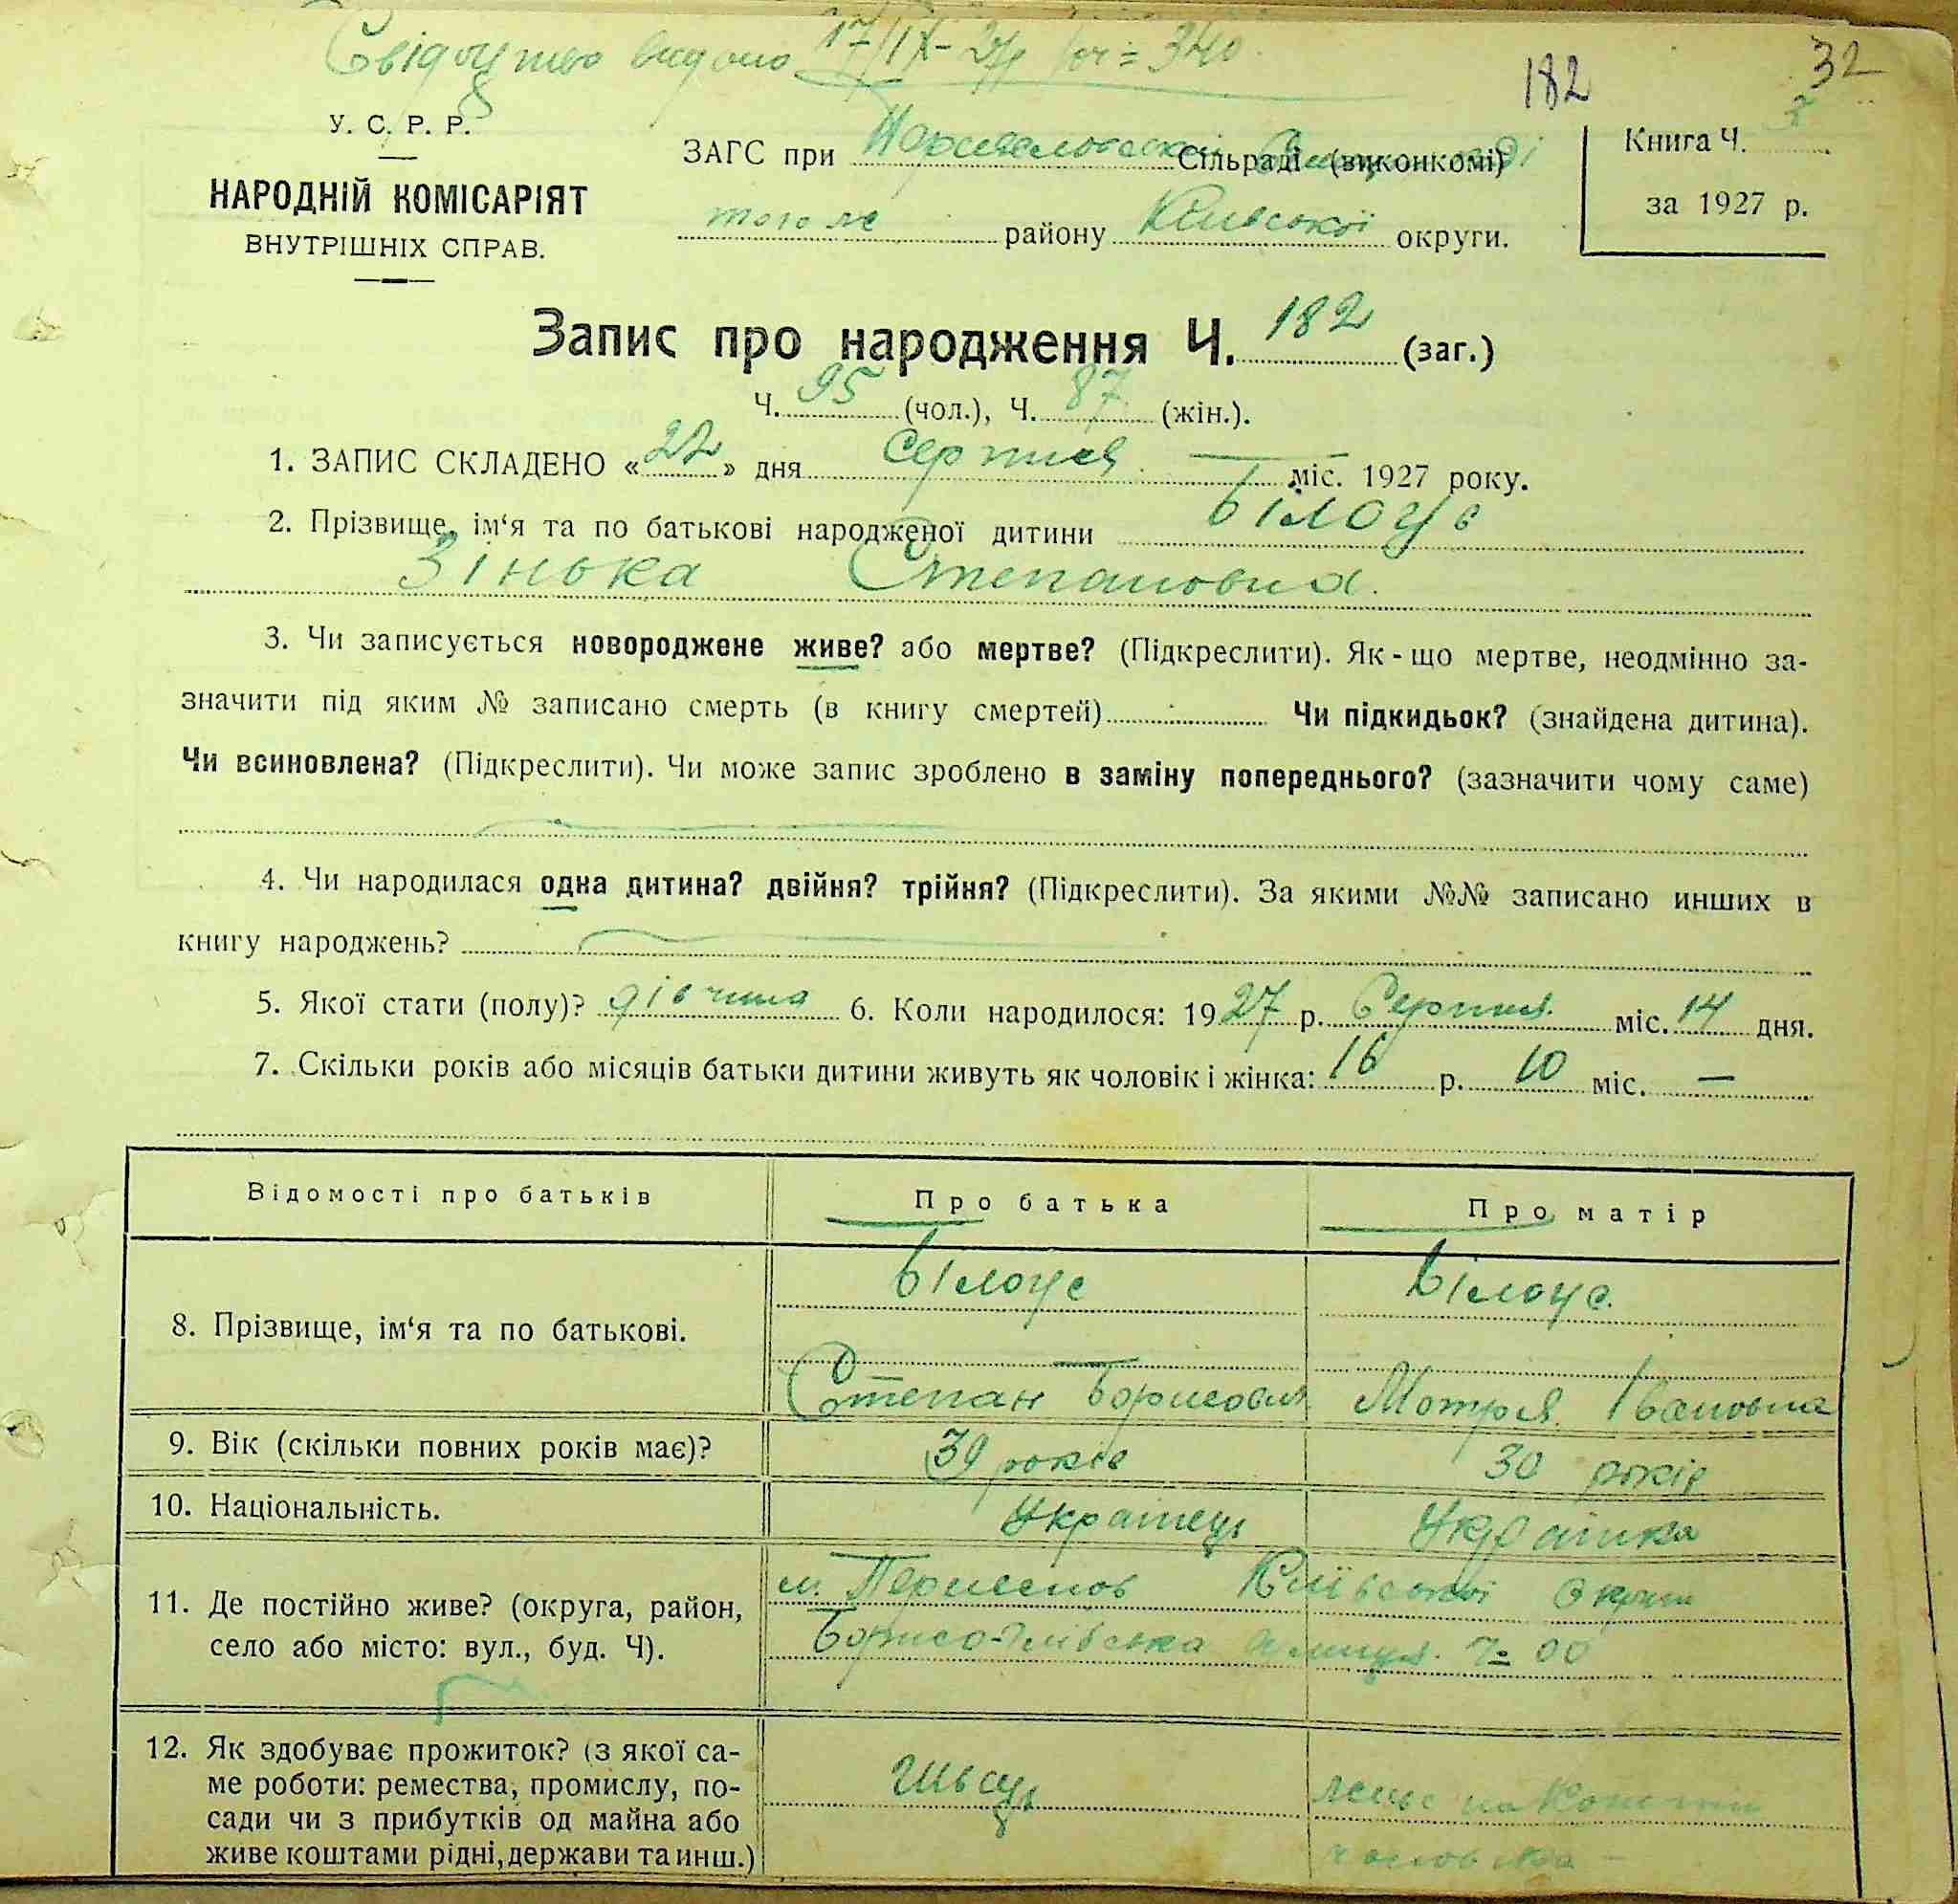 Свідоцтво видано 17/IX-27р. 340.
182
32
У. С. Р. Р.
НАРОДНІЙ КОМІСАРІЯТ
ВНУТРІШНІХ СПРАВ.
ЗАГС при Сільраді (виконкомі)
того ж району Київської округи.
Книга Ч. 3
за 1927 р.
Запис про народження Ч. 182 (заг.)
Ч. 95 (чол.), Ч. 87 (жін.).
1. ЗАПИС СКЛАДЕНО «22» дня Серпня міс. 1927 року.
2. Прізвище, ім‘я та по батькові народженої дитини Білоус
Зінька Степановна.
3. Чи записується новороджене живе? або мертве? (Підкреслити). Як-що мертве, неодмінно за-
значити під яким № записано смерть (в книгу смертей) Чи підкидьок? (знайдена дитина).
Чи всиновлена? (Підкреслити). Чи може запис зроблено в заміну попереднього? (зазначити чому саме)
4. Чи народилася одна дитина? двійня? трійня? (Підкреслити). За якими №№ записано инших в
книгу народжень?
5. Якої стати (полу)? дівчина 6. Коли народилося: 1927 р. Серпня. міс. 14 дня.
7. Скільки років або місяців батьки дитини живуть як чоловік і жінка: 16 р. 10 міс. —
Відомості про батьків Про батька Про матір
8. Прізвище, ім‘я та по батькові. Білоус Білоус.
Степан Борисович Мотря Івановна
9. Вік (скільки повних років має)? 39 років 30 років
10. Національність. Українець Українка
11. Де постійно живе? (округа, район,
село або місто: вул., буд. Ч).
м. Київської Округи
Борисо-Глібська вулиця. 00
12. Як здобуває прожиток? (з якої са-
ме роботи: ремества, промислу, по-
сади чи з прибутків од майна або
живе коштами рідні, держави та инш.)
Швець
живе на Кошти
чоловіка